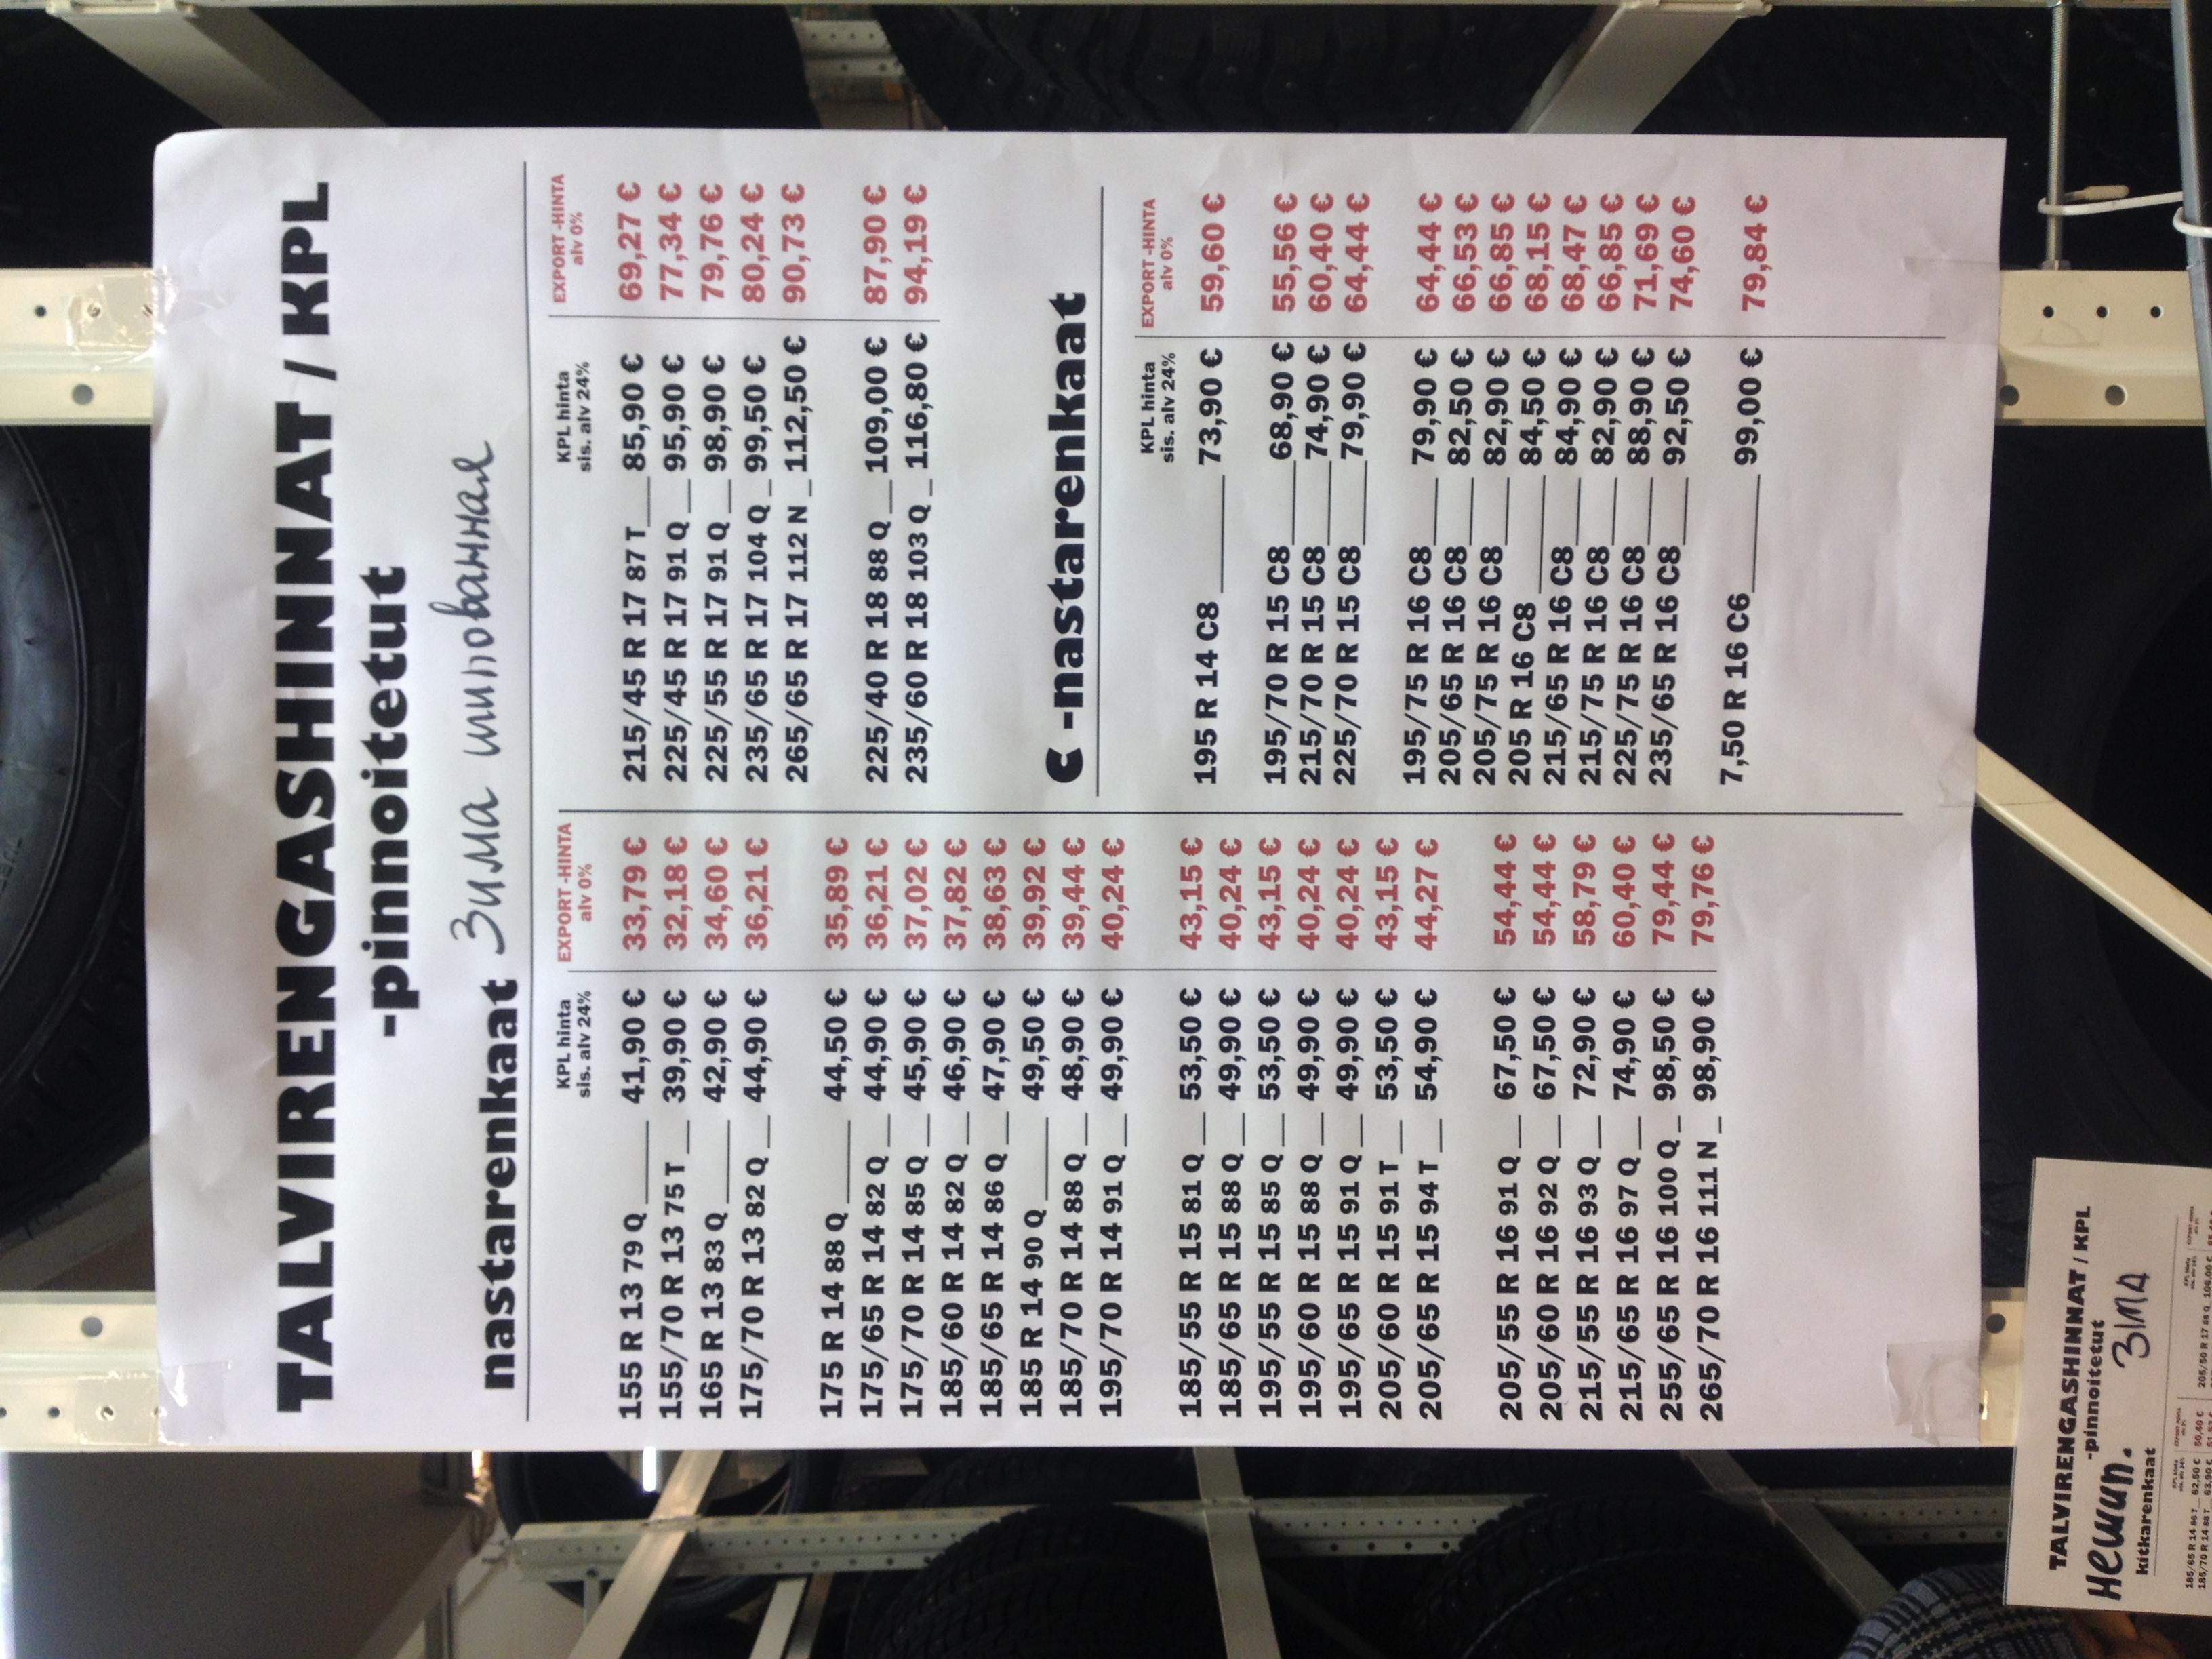 TALVIRENGASHINNAT / KPL
-pinnoitetut
nastarenkaat Зима шипованная
KPL hinta
sis. alv 24%
EXPORT -HINTA
alv 0%
155 R 13 79 Q ____ 41,90 € 33,79 €
155/70 R 13 75 T __ 39,90 € 32,18 €
165 R 13 83 Q ____ 42,90 € 34,60 €
175/70 R 13 82 Q _ 44,90 € 36,21 €
175 R 14 88 Q ____ 44,50 € 35,89 €
175/65 R 14 82 Q __ 44,90 € 36,21 €
175/70 R 14 85 Q __ 45,90 € 37,02 €
185/60 R 14 82 Q __ 46,90 € 37,82 €
185/65 R 14 86 Q __ 47,90 € 38,63 €
185 R 14 90 Q ____ 49,50 € 39,92 €
185/70 R 14 88 Q __ 48,90 € 39,44 €
195/70 R 14 91 Q __ 49,90 € 40,24 €
185/55 R 15 81 Q __ 53,50 € 43,15 €
185/65 R 15 88 Q __ 49,90 € 40,24 €
195/55 R 15 85 Q __ 53,50 € 43,15 €
195/60 R 15 88 Q __ 49,90 € 40,24 €
195/65 R 15 91 Q __ 49,90 € 40,24 €
205/60 R 15 91 T __ 53,50 € 43,15 €
205/65 R 15 94 T __ 54,90 € 44,27 €
205/55 R 16 91 Q __ 67,50 € 54,44 €
205/60 R 16 92 Q __ 67,50 € 54,44 €
215/55 R 16 93 Q __ 72,90 € 58,79 €
215/65 R 16 97 Q __ 74,90 € 60,40 €
255/65 R 16 100 Q _ 98,50 € 79,44 €
265/70 R 16 111 N _ 98,90 € 79,76 €
KPL hinta
sis. alv 24%
EXPORT -HINTA
alv 0%
215/45 R 17 87 T ___ 85,90 € 69,27 €
225/45 R 17 91 Q __ 95,90 € 77,34 €
225/55 R 17 91 Q __ 98,90 € 79,76 €
235/65 R 17 104 Q _ 99,50 € 80,24 €
265/65 R 17 112 N _ 112,50 € 90,73 €
225/40 R 18 88 Q __ 109,00 € 87,90 €
235/60 R 18 103 Q _ 116,80 € 94,19 €
C -nastarenkaat
KPL hinta
sis. alv 24%
EXPORT -HINTA
alv 0%
195 R 14 C8 ______ 73,90 € 59,60 €
195/70 R 15 C8 ____ 68,90 € 55,56 €
215/70 R 15 C8 ____ 74,90 € 60,40 €
225/70 R 15 C8 ____ 79,90 € 64,44 €
195/75 R 16 C8 ____ 79,90 € 64,44 €
205/65 R 16 C8 ____ 82,50 € 66,53 €
205/75 R 16 C8 ____ 82,90 € 66,85 €
205 R 16 C8 ______ 84,50 € 68,15 €
215/65 R 16 C8 ____ 84,90 € 68,47 €
215/75 R 16 C8 ____ 82,90 € 66,85 €
225/75 R 16 C8 ____ 88,90 € 71,69 €
235/65 R 16 C8 ____ 92,50 € 74,60 €
7,50 R 16 C6 ______ 99,00 € 79,84 €
TALVIRENGASHINNAT / KPL
-pinnoitetut
Нешип. ЗИМА
kitkarenkaat
185/65 R 14 86 T 62,50 € 50,40 €
185/70 R 14 88 T 63,90 €
205/50 R 17 88 Q 106,00 €